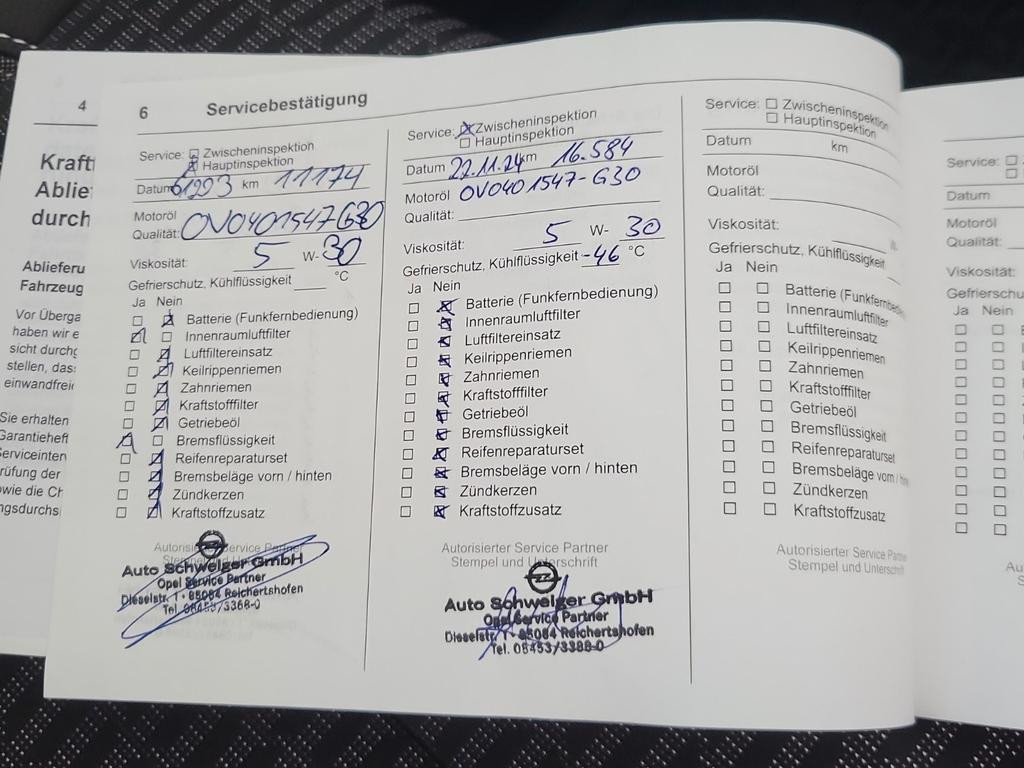 4
Kraft
Ablie
durch
Ablieferu
Fahrzeug
Vor Überga
haben wir e
sicht durchg
stellen, das
einwandfrei
Sie erhalten
Garantieheft
Serviceinten
rüfung der
wie die Ch
ngsdurchs
6 Servicebestätigung
Service: Zwischeninspektion
Hauptinspektion
Datum km 11174
Motoröl
Qualität: OV0401547G30
Viskosität: 5 W- 30
Gefrierschutz, Kühlflüssigkeit °C
Ja Nein
Batterie (Funkfernbedienung)
Innenraumluftfilter
Luftfiltereinsatz
Keilrippenriemen
Zahnriemen
Kraftstofffilter
Getriebeöl
Bremsflüssigkeit
Reifenreparaturset
Bremsbeläge vorn / hinten
Zündkerzen
Kraftstoffzusatz
Autorisierter Service Partner
Stempel und Unterschrift
Auto Schweiger GmbH
Opel Service Partner
Dieselstr. 1 · 85084 Reichertshofen
Tel. 08453/3388-0
Service: Zwischeninspektion
Hauptinspektion
Datum 22.11.24 km 16.584
Motoröl OV0401547-G30
Qualität:
Viskosität: 5 W- 30
Gefrierschutz, Kühlflüssigkeit -46 °C
Ja Nein
Batterie (Funkfernbedienung)
Innenraumluftfilter
Luftfiltereinsatz
Keilrippenriemen
Zahnriemen
Kraftstofffilter
Getriebeöl
Bremsflüssigkeit
Reifenreparaturset
Bremsbeläge vorn / hinten
Zündkerzen
Kraftstoffzusatz
Autorisierter Service Partner
Stempel und Unterschrift
Auto Schweiger GmbH
Opel Service Partner
Dieselstr. 1 · 85084 Reichertshofen
Tel. 08453/3388-0
Service: Zwischeninspektion
Hauptinspektion
Datum km
Motoröl
Qualität:
Viskosität: W-
Gefrierschutz, Kühlflüssigkeit
Ja Nein
Batterie (Funkfernbedie
Innenraumluftfilter
Luftfiltereinsatz
Keilrippenriemen
Zahnriemen
Kraftstofffilter
Getriebeöl
Bremsflüssigkeit
Reifenreparaturset
Bremsbeläge vorn / hin
Zündkerzen
Kraftstoffzusatz
Autorisierter Service Partne
Stempel und Unterschrift
Service:
Datum
Motoröl
Qualität:
Viskosität:
Gefrierschu
Ja Nein
Au
S